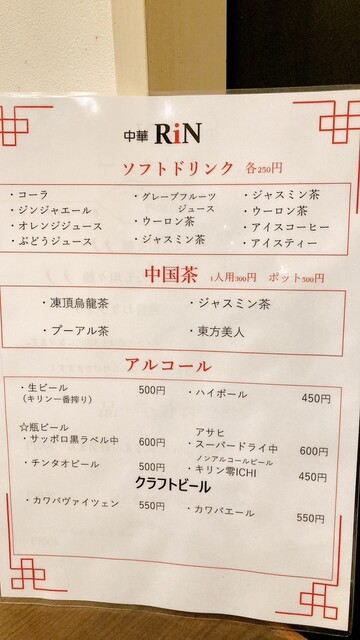 中華 RiN
ソフトドリンク 各250円
・コーラ
・ジンジャエール
・オレンジジュース
・ぶどうジュース
・グレープフルーツ
ジュース
・ウーロン茶
・ジャスミン茶
・ジャスミン茶
・ウーロン茶
・アイスコーヒー
・アイスティー
中国茶 1人用300円 ポット500円
・凍頂烏龍茶
・ジャスミン茶
・プーアル茶
・東方美人
アルコール
・生ビール 500円
(キリン一番搾り)
・ハイボール 450円
☆瓶ビール
・サッポロ黒ラベル中 600円
アサヒ
・スーパードライ中 600円
・チンタオビール 500円
ノンアルコールビール
・キリン零ICHI 450円
クラフトビール
・カワバヴァイツェン 550円
・カワバエール 550円